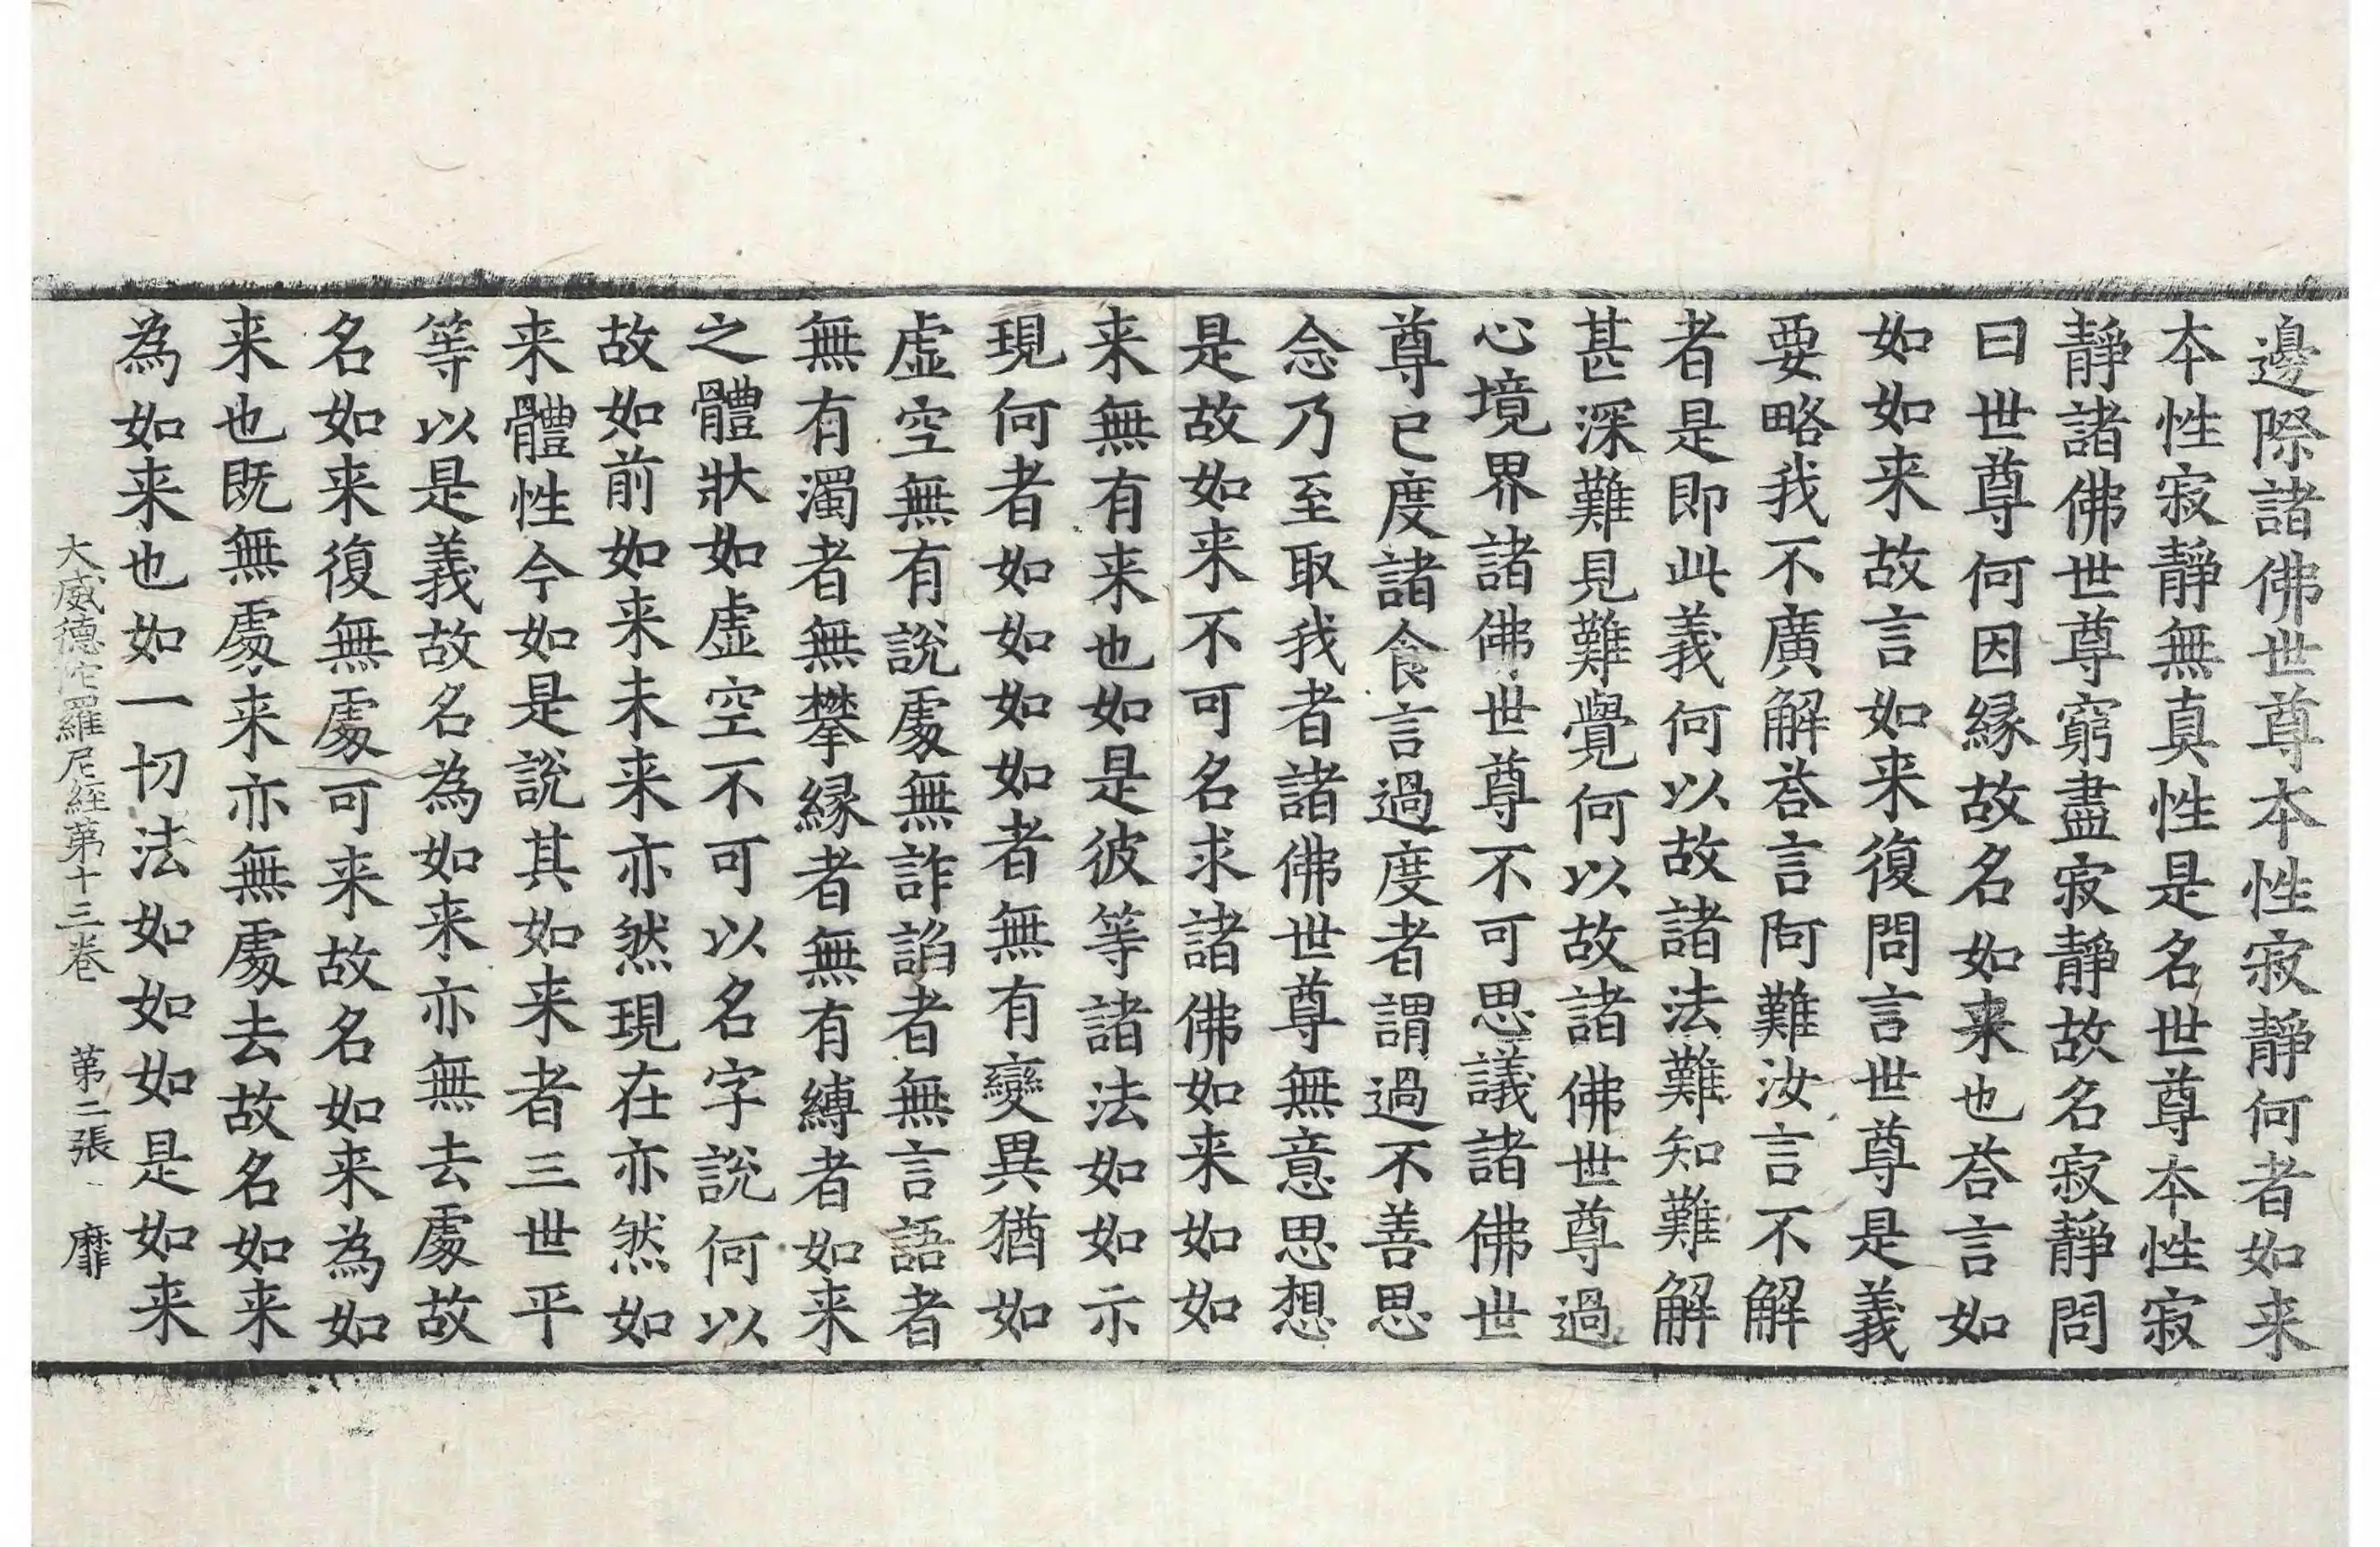 邊際諸佛世尊本性寂靜何者如来
本性寂靜無真性是名世尊本性寂
靜諸佛世尊窮盡寂靜故名寂靜問
曰世尊何因縁故名如来也荅言如
如如来故言如来復問言世尊是義
要略我不廣解荅言阿難汝言不解
者是即此義何以故諸法難知難解
甚深難見難覺何以故諸佛世尊過
心境界諸佛世尊不可思議諸佛世
尊已度諸食言過度者謂過不善思
念乃至取我者諸佛世尊無意思想
是故如来不可名求諸佛如来如如
来無有来也如是彼等諸法如如示
現何者如如如如者無有變異猶如
虛空無有說處無詐諂者無言語者
無有濁者無攀縁者無有縛者如来
之體狀如虛空不可以名字說何以
故如前如来未来亦然現在亦然如
来體性今如是說其如来者三世平
等以是義故名為如来亦無去處故
名如来復無處可来故名如来為如
来也既無處来亦無處去故名如来
為如来也如一切法如如如是如来
大威德陀羅尼経第十三卷 第二張 靡